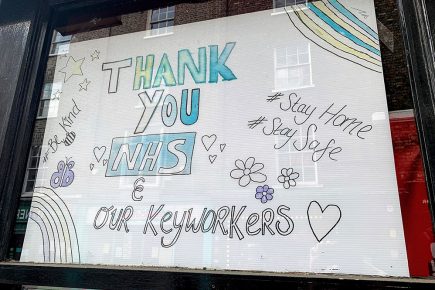 THANK
YOU
NHS
&
OUR KEYWORKERS
#Be Kind
#Stay Home
#Stay Safe